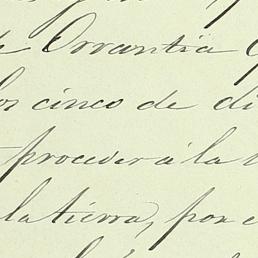 de Orrantia
los cinco de di
proceder á la
la tierra, por